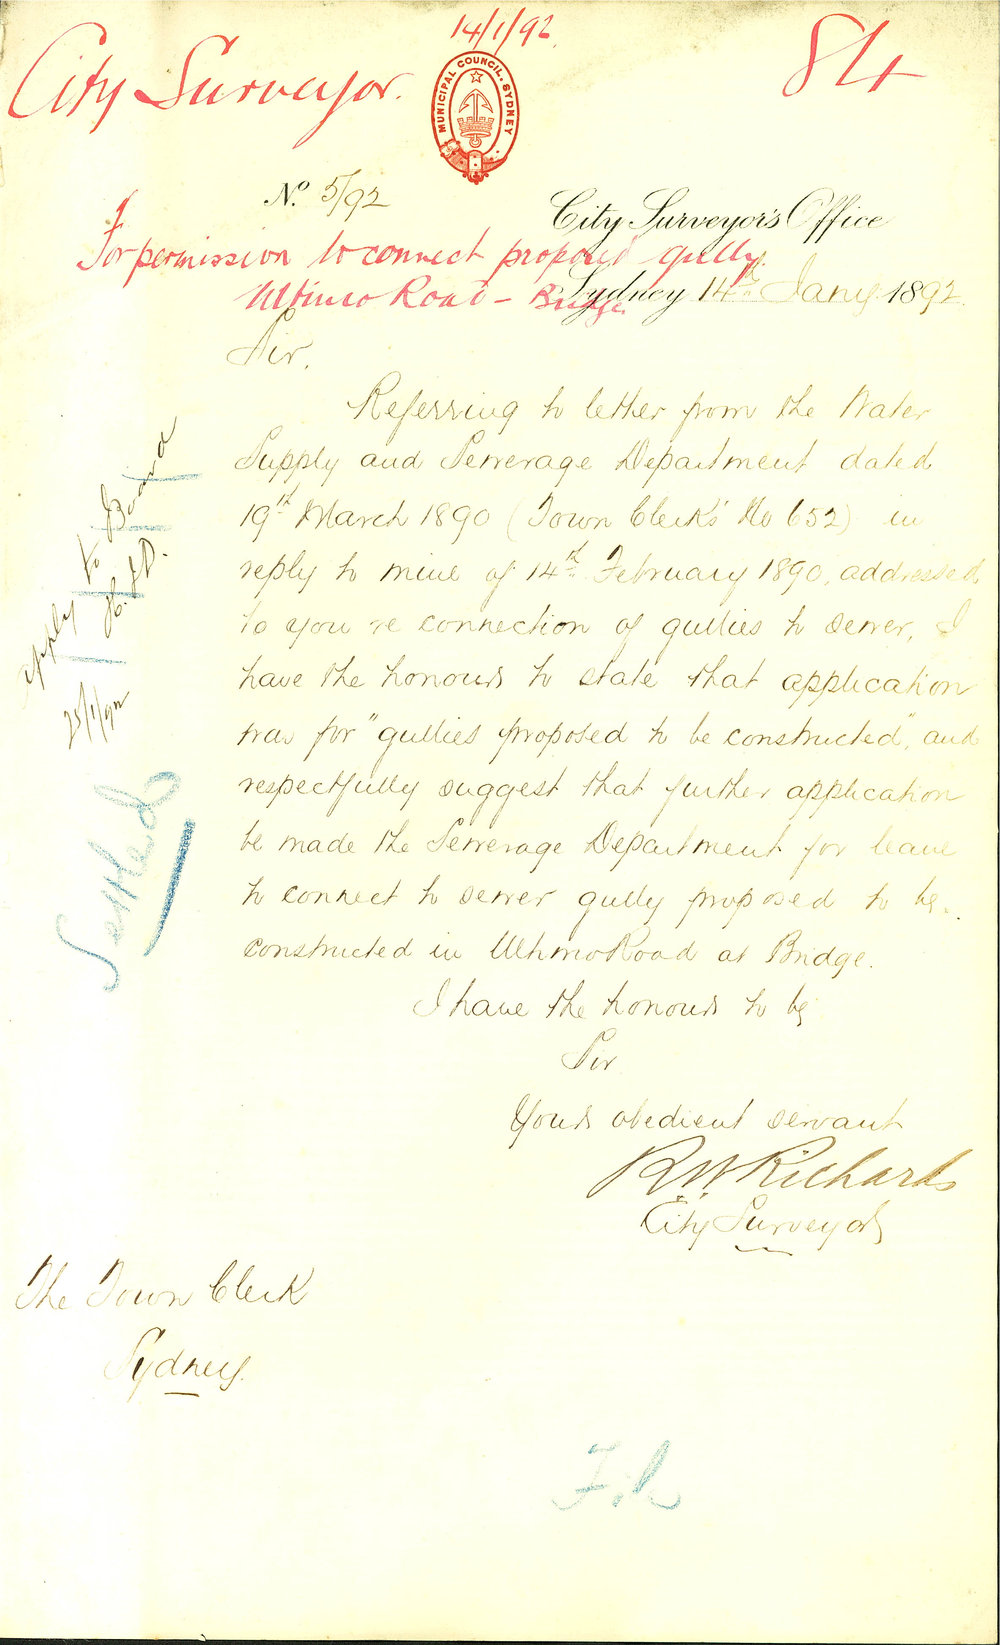 14/1/92
City Surveyor.
84
MUNICIPAL COUNCIL. SYDNEY
No. 5/92
City Surveyor's Office
For permission to connect proposed gully
Sydney 14th Jany 1892
Ultimo Road - Bridge.
Sir,
Referring to letter from the Water
Supply and Sewerage Department dated
19th March 1890 (Town Clerks' No 652) in
reply to mine of 14th February 1890, addressed
to you re connection of gullies to sewer, I
have the honour to state that application
was for "gullies proposed to be constructed", and
respectfully suggest that further application
be made the Sewerage Department for leave
to connect to sewer gully proposed to be
constructed in Ultimo Road at Bridge.
I have the honour to be
Sir
Yours obedient servant
R W Richards
City Surveyor
The Town Clerk
Sydney.
apply to Board
25/1/92
Settled